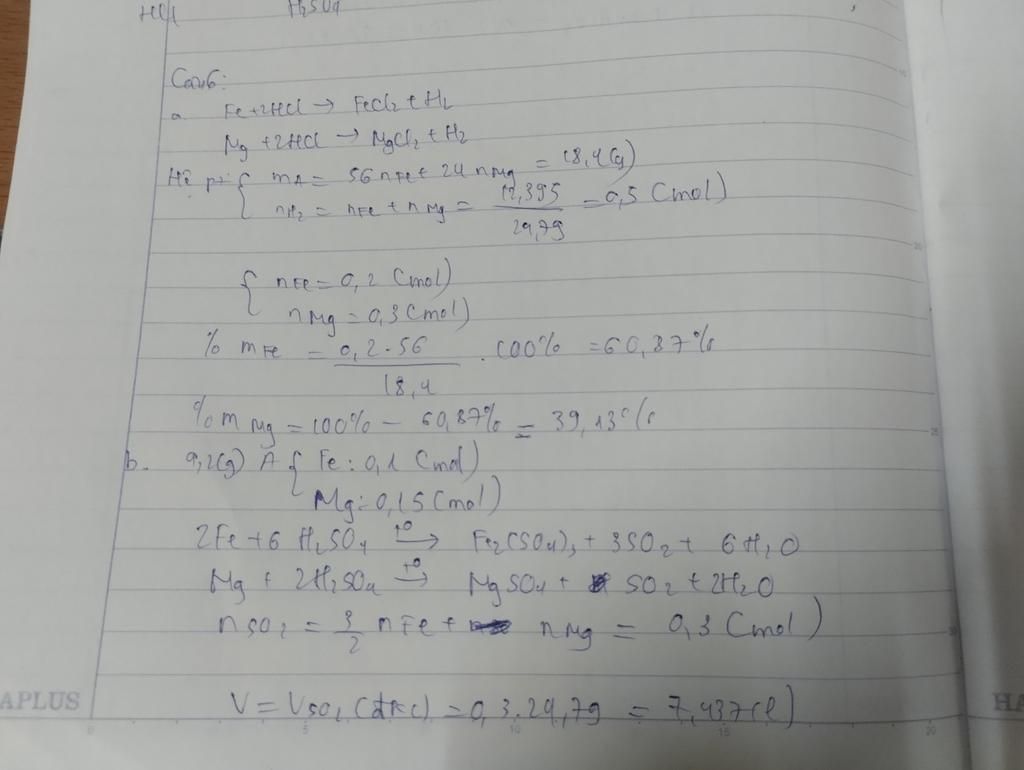 HCl H₂SO₄
Câu 6:
a. Fe + 2HCl → FeCl₂ + H₂
Mg + 2HCl → MgCl₂ + H₂
Hệ pt: { mA = 56nFe + 24nMg = 18,4 (g)
nH₂ = nFe + nMg = 12,395 / 24,79 = 0,5 (mol)
{ nFe = 0,2 (mol)
nMg = 0,3 (mol)
% mFe = 0,2.56 / 18,4 . 100% = 60,87%
% mMg = 100% - 60,87% = 39,13%
b. 9,2(g) A { Fe: 0,1 (mol)
Mg: 0,15 (mol)
2Fe + 6H₂SO₄ →t° Fe₂(SO₄)₃ + 3SO₂ + 6H₂O
Mg + 2H₂SO₄ →t° MgSO₄ + SO₂ + 2H₂O
nSO₂ = 3/2 nFe + nMg = 0,3 (mol)
V = VSO₂ (đkc) = 0,3.24,79 = 7,437 (l)
APLUS HA
0 5 10 15 20